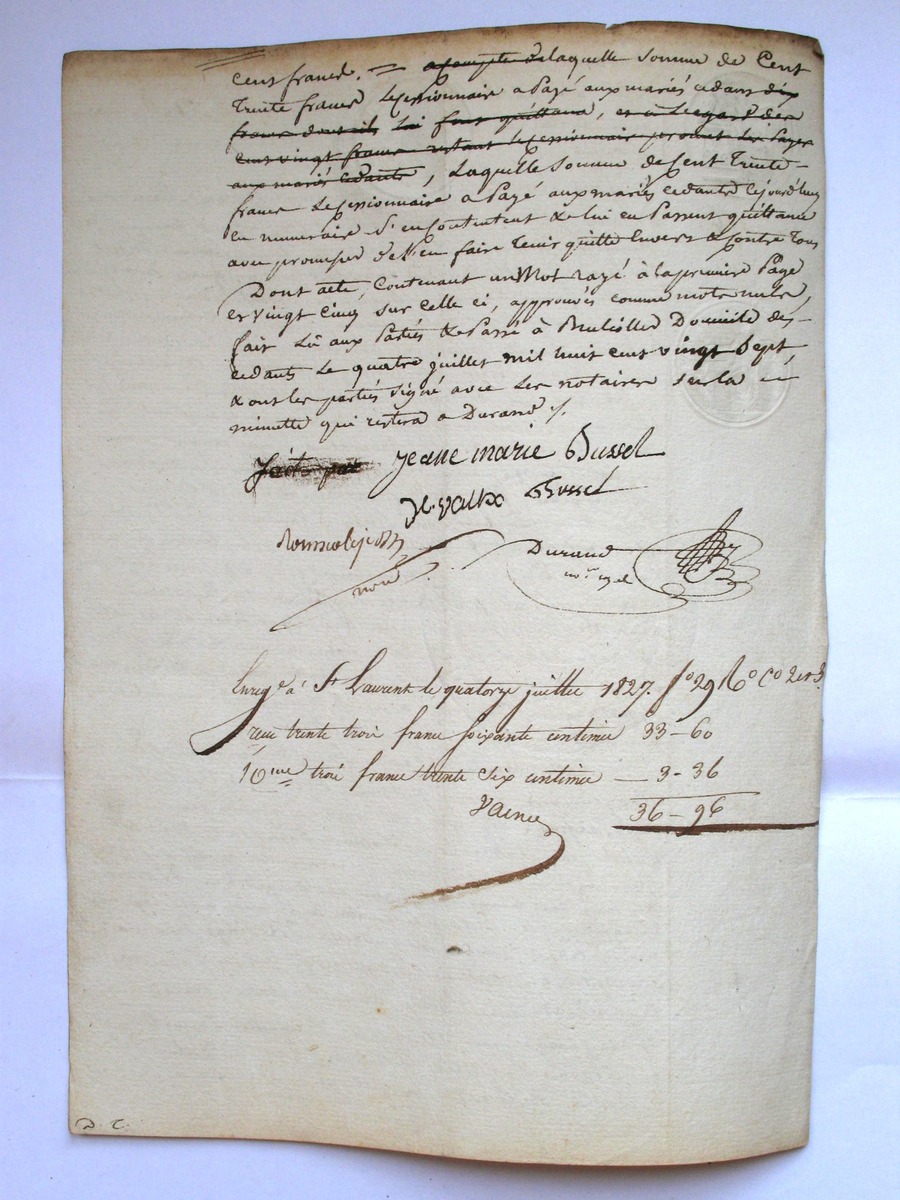 cent francs. = a compte de laquelle somme de Cent
Trente francs Lecessionnaire a Payé aux mariés cedans dix
francs dont ils lui font quittance, et a l'egard des
cent vingt francs restant lecessionnaire promet les Payer
aux mariés cedants, Laquelle Somme de Cent Trente
francs Lecessionnaire a Payé aux mariés cedants Cejourd'huy
en numeraire S'en Contentent & lui en Passent quittance
avec promesse de l'en faire Tenir quitte Envers & Contre Tous
Dont acte, Contenant un Mot rayé à la premiere Page
et Vingt Cinq sur Celle ci, approuvés comme mots nuls,
fait Lû aux Parties & Passé à Domicile des
cedants Le quatre juillet mil huit cent vingt Sept
& ont les parties Signé avec Les notaires sur la
minutte qui restera a Durand ./.
fait par Jeane marie Bussel
Bussel
Durand
nore
Enregé à St Laurent le quatorze juillet 1827. fo 29 Ro Co 2 et 3.
reçu trente trois francs soixante centimes 33-60
10me trois francs trente six centimes — 3-36
36-96
D. C.